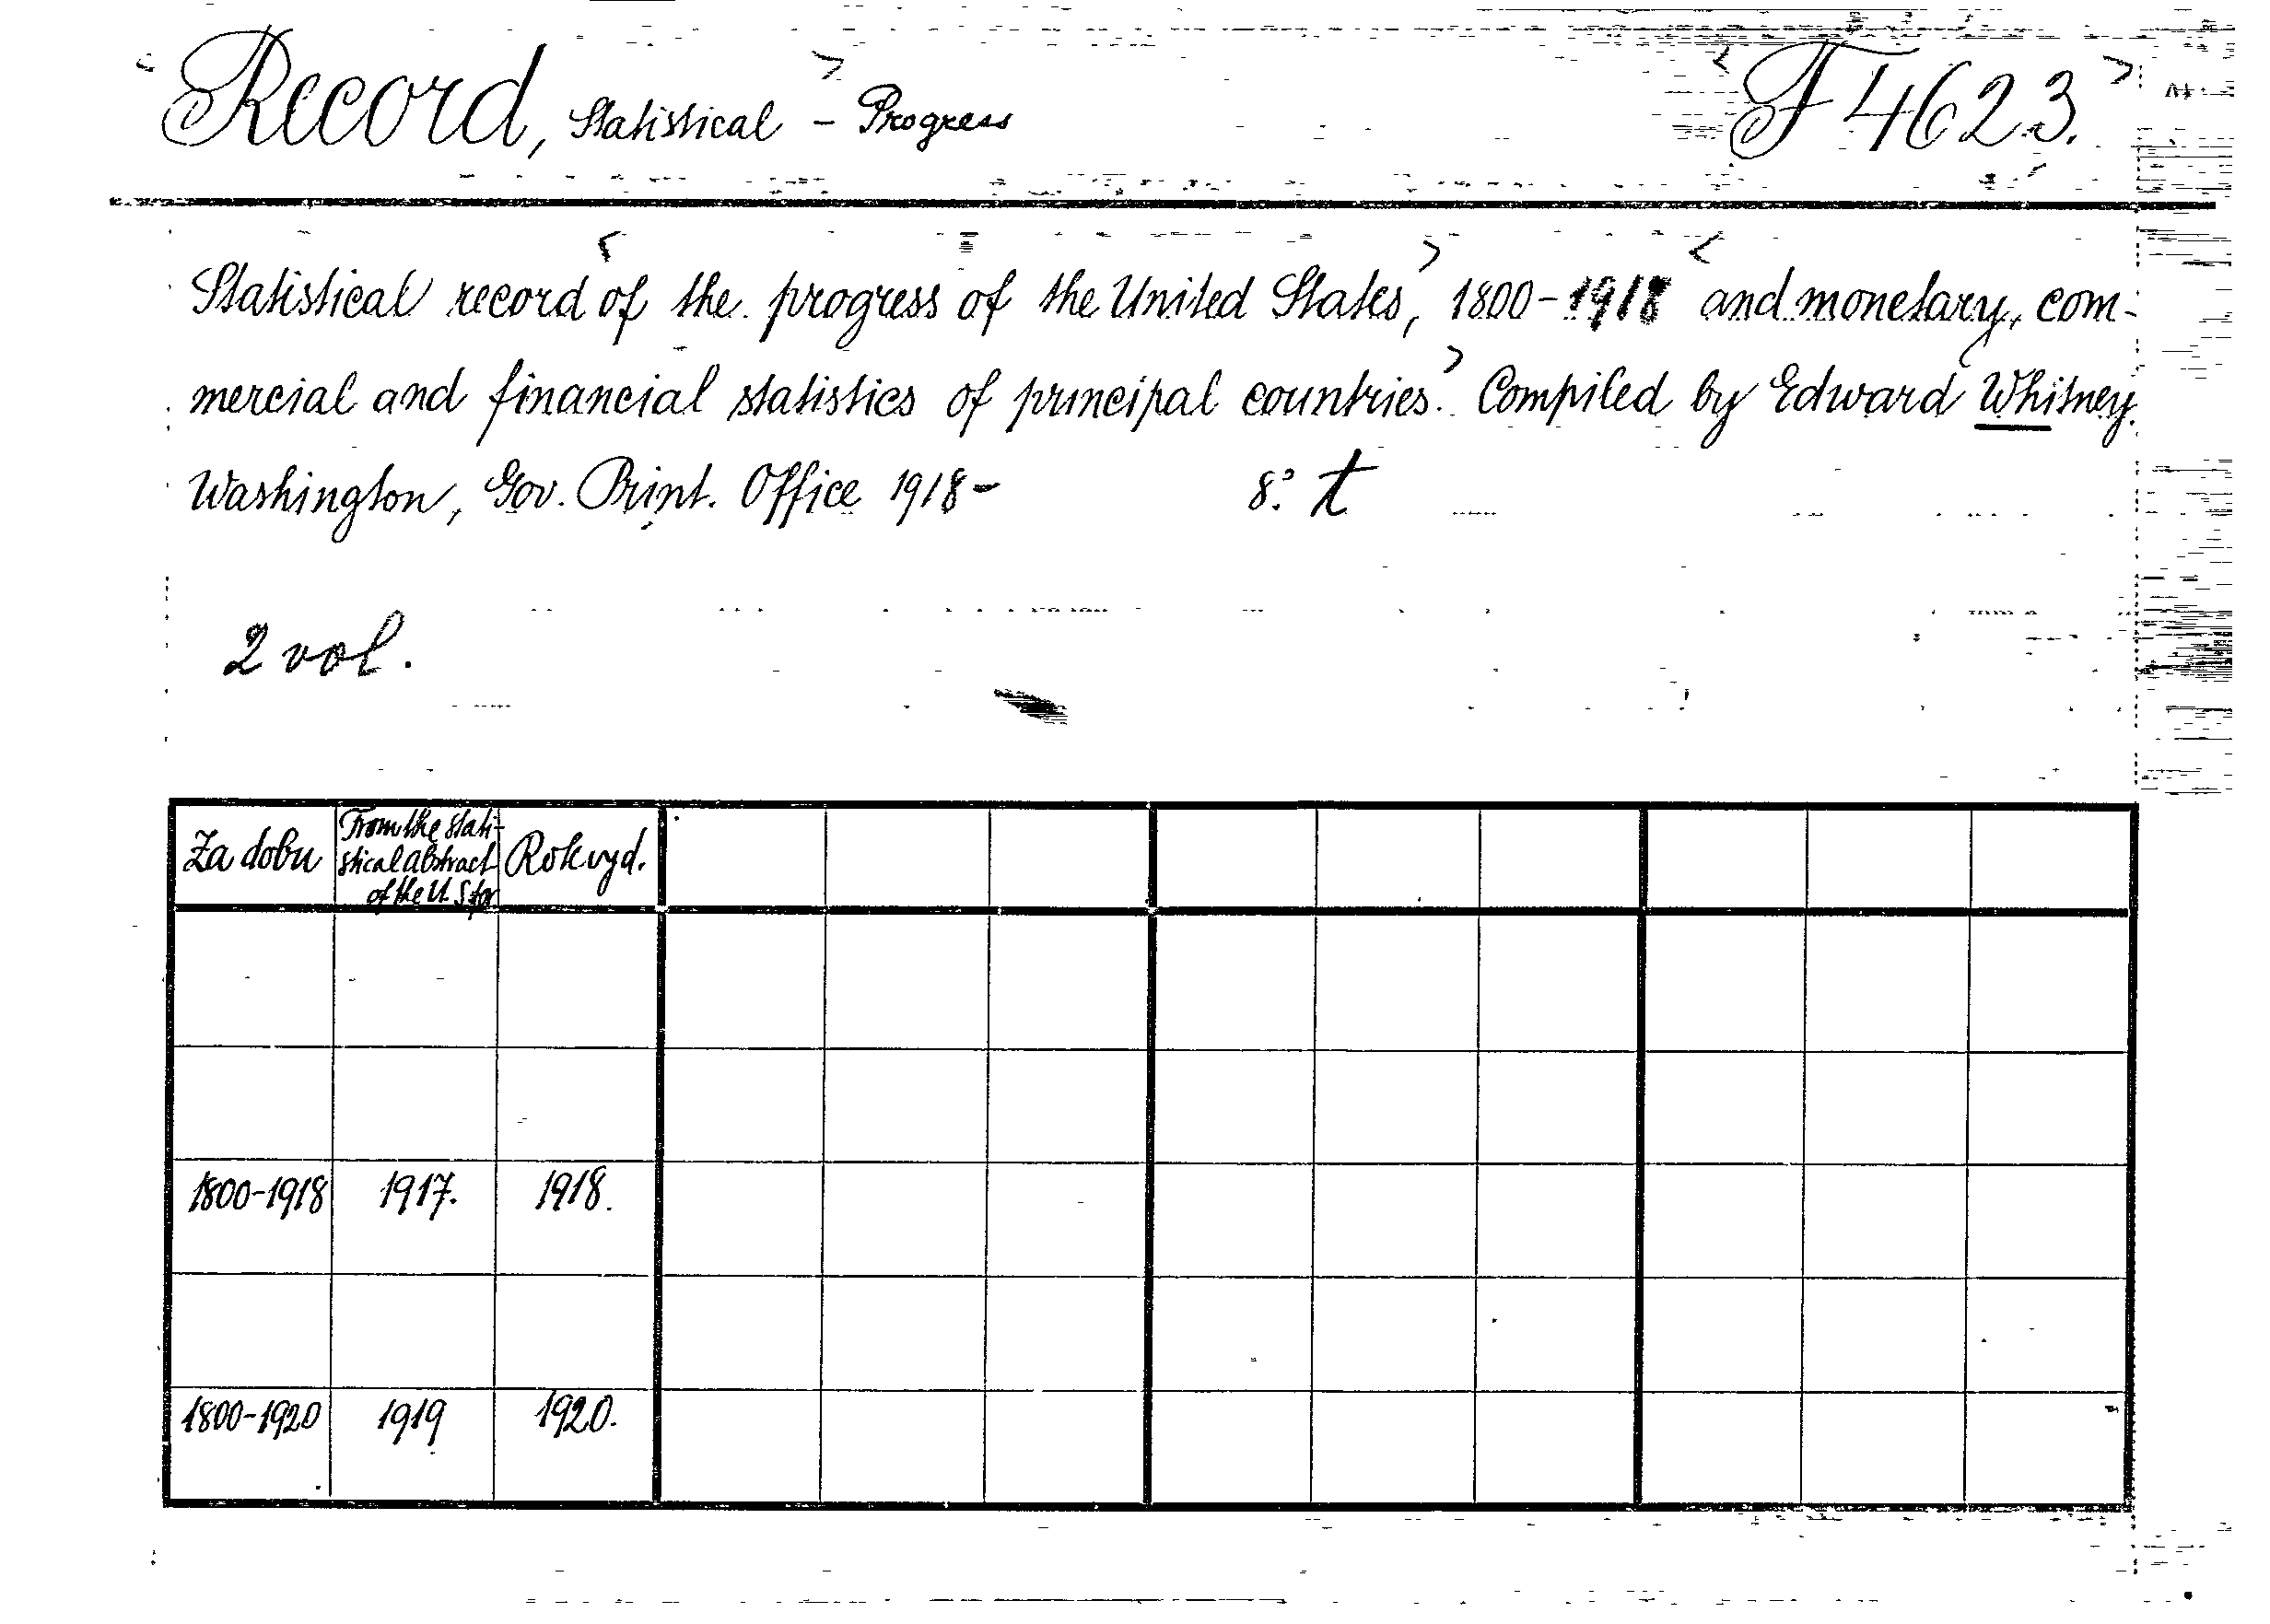 Record, Statistical - Progress F 4623.
Statistical record of the progress of the United States, 1800-1918 and monetary, com-
mercial and financial statistics of principal countries. Compiled by Edward Whitney.
Washington, Gov. Print. Office 1918- 8° t
2 vol.
Za dobu From the stati- Rok vyd.
stical abstract
of the U. S for
1800-1918 1917. 1918.
1800-1920 1919 1920.